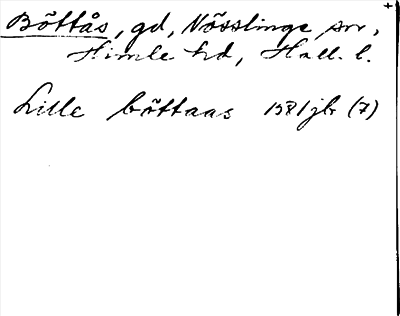 Böttås, gd, Nösslinge sn,
Himle hd, Hall. l.
Lille böttaas 1581 jb (7)